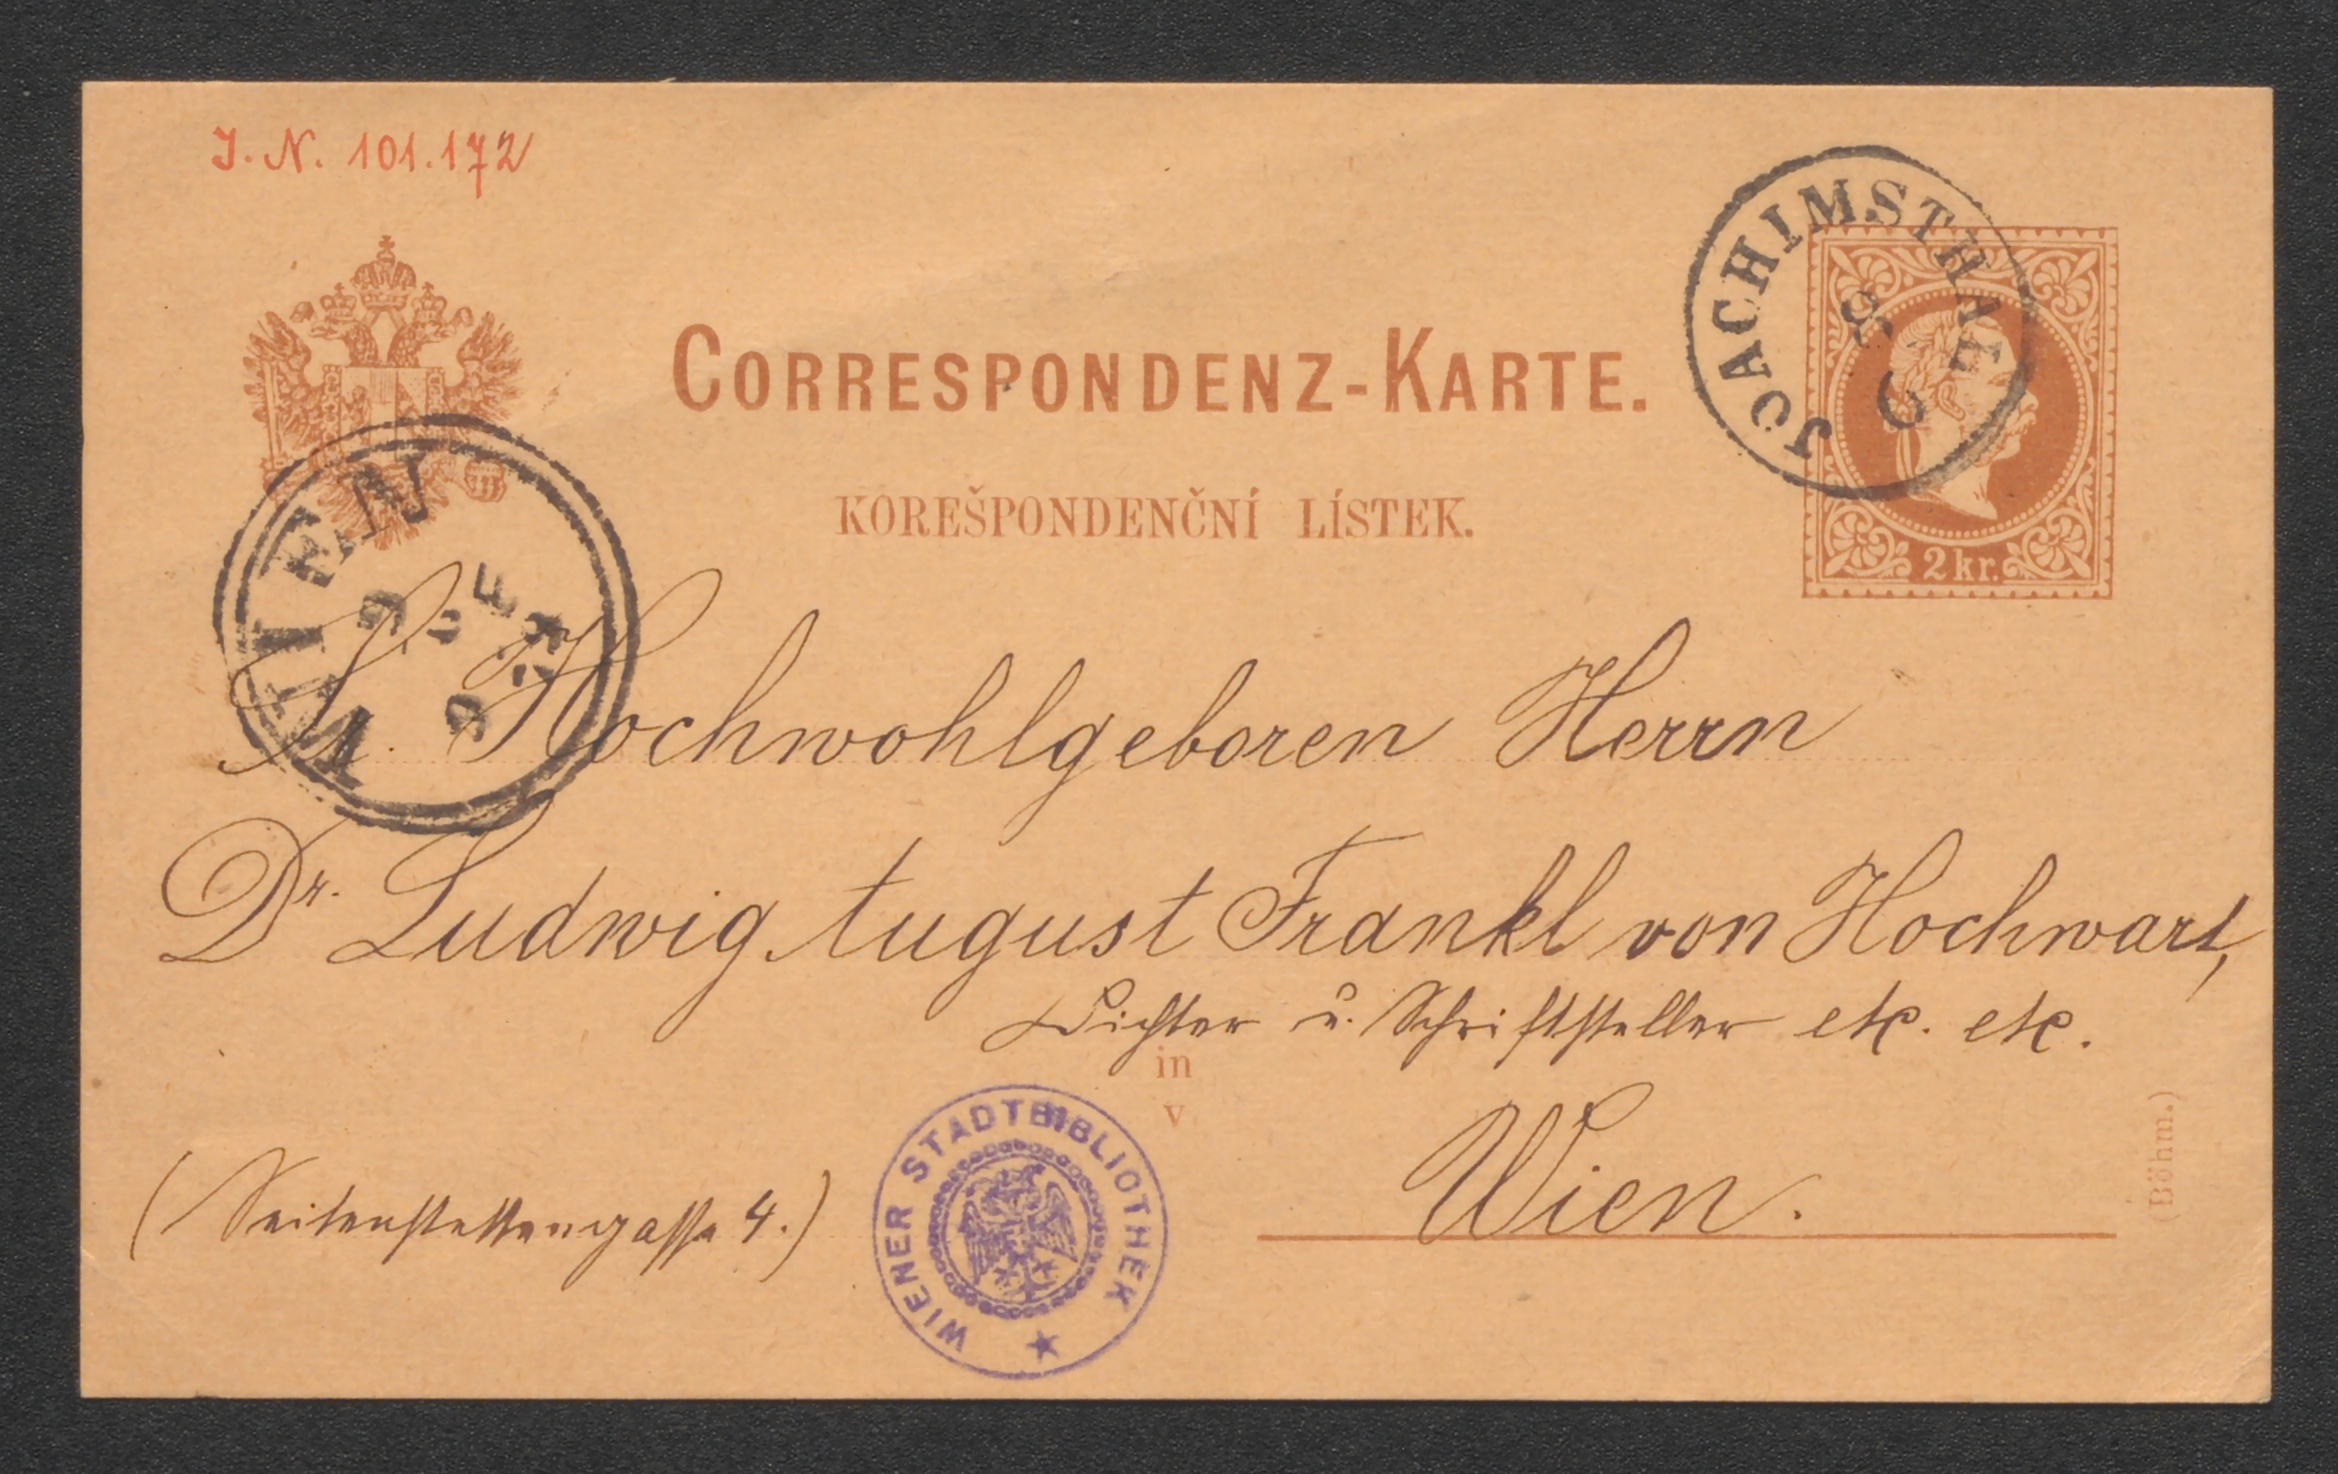 J. N. 101.172
JOACHIMSTHAL
8
9
CORRESPONDENZ-KARTE.
KOREŠPONDENČNÍ LÍSTEK.
2 kr.
WIEN
9
9
Sr. Hochwohlgeboren Herrn
Dr. Ludwig August Frankl von Hochwart,
Dichter u. Schriftsteller etc. etc.
in
v
Wien.
(Seitenstettengasse 4.)
WIENER STADTBIBLIOTHEK
(Böhm.)